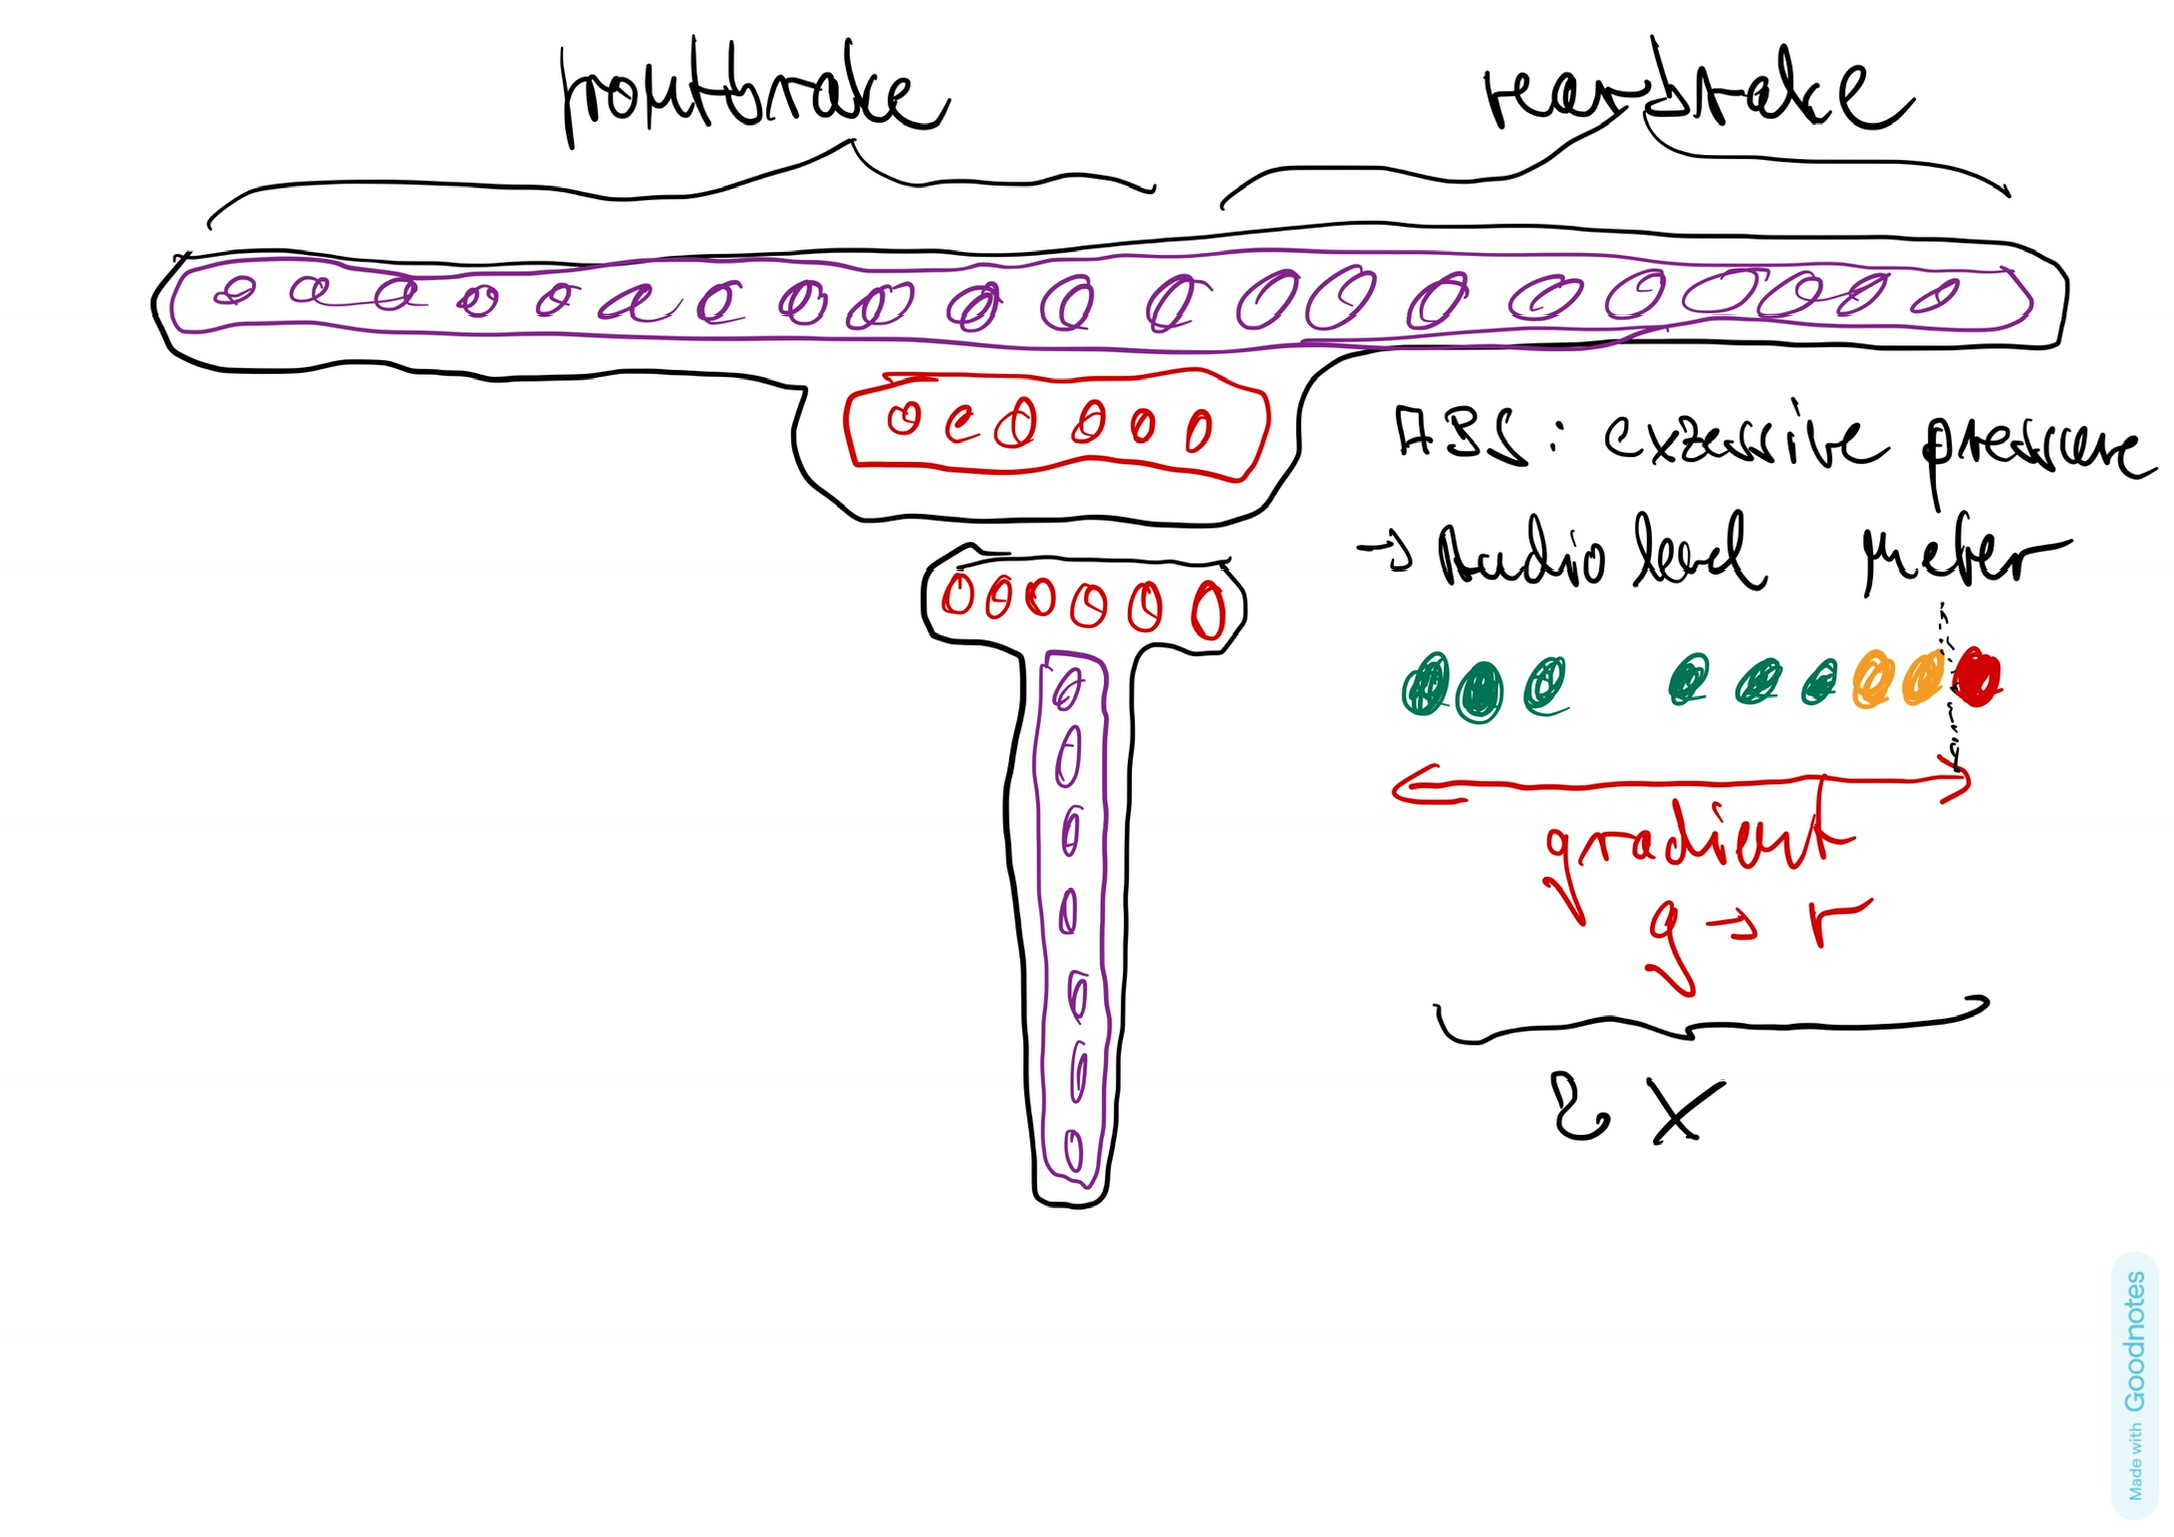 frontbrake
rearbrake
ABS: exzessive pressure
→ Audio level meter
gradient
g → r
2 X
Made with Goodnotes